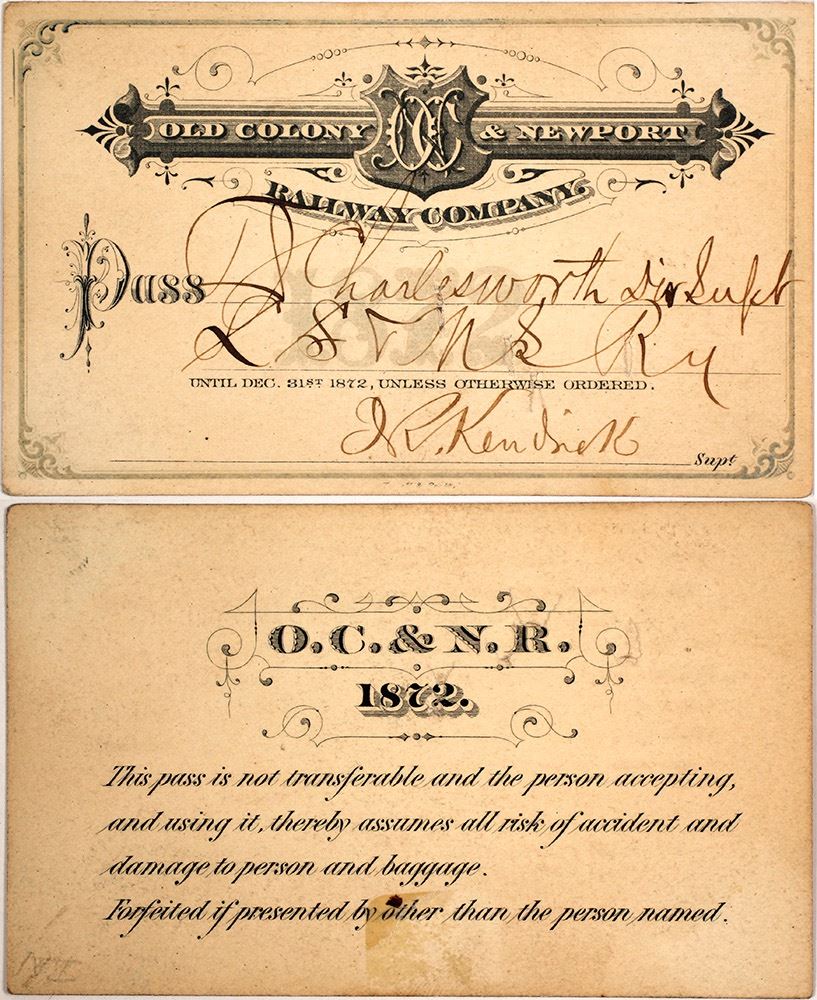 OLD COLONY OC & NEWPORT
RAILWAY COMPANY.
1872
Pass Charlesworth Div Supt
L S & M S Ry
UNTIL DEC. 31ST 1872, UNLESS OTHERWISE ORDERED.
J. R. Kendrick Supt
O. C. & N. R.
1872.
This pass is not transferable and the person accepting,
and using it, thereby assumes all risk of accident and
damage to person and baggage.
Forfeited if presented by other than the person named.